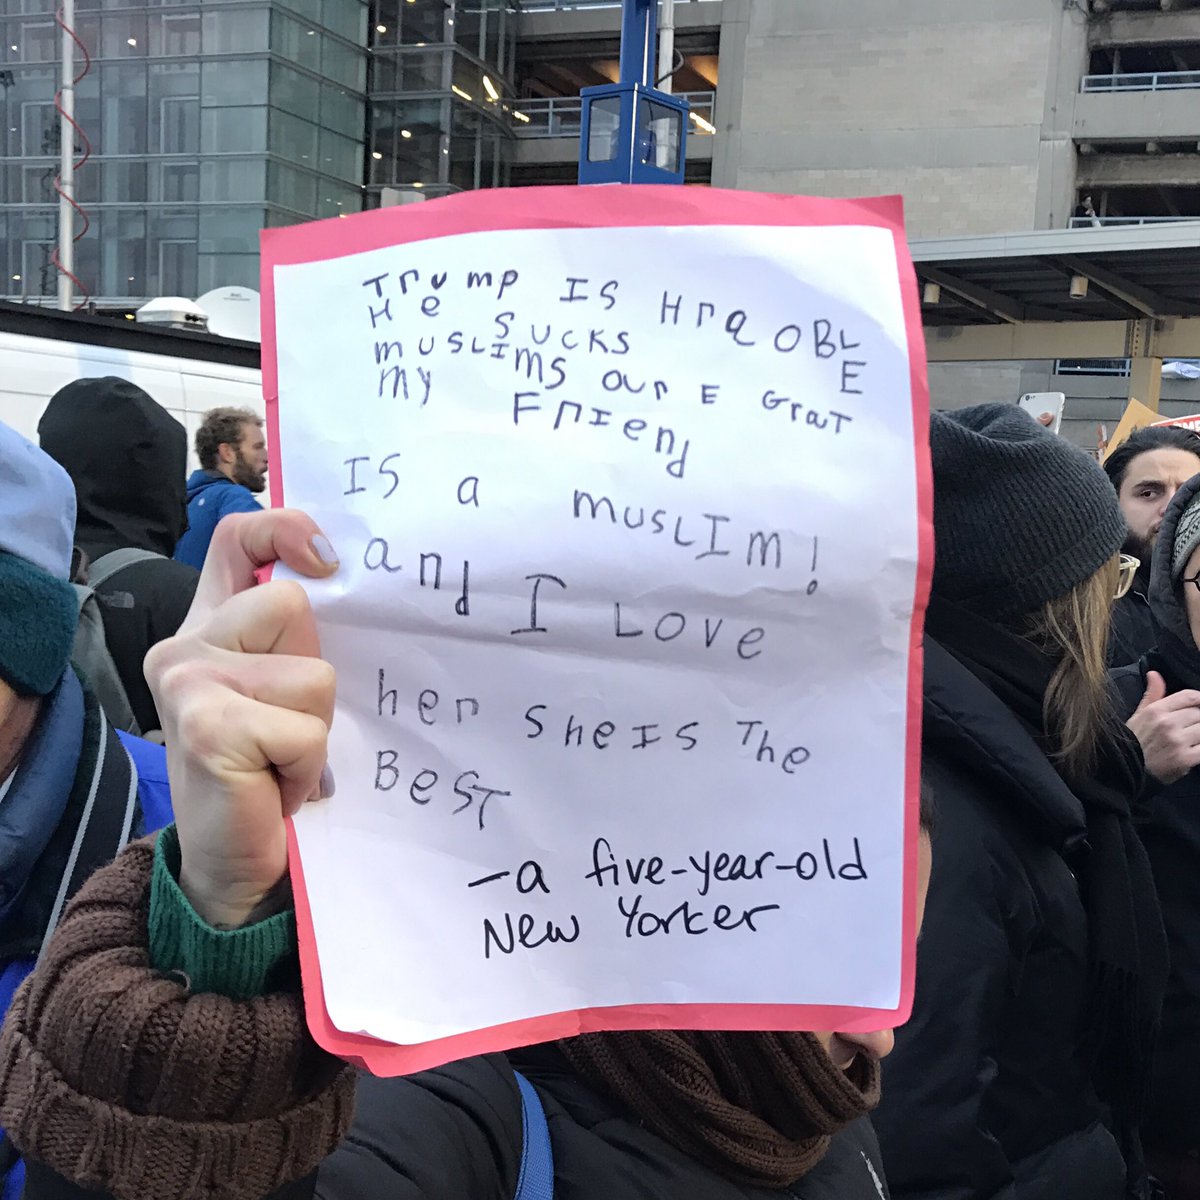 Trump IS HraOBLE
He SUCKS
muSLIms OUrE GraT
my FrIend
IS a musLIm!
and I Love
her SheIS The
BeST
-a five-year-old
New Yorker